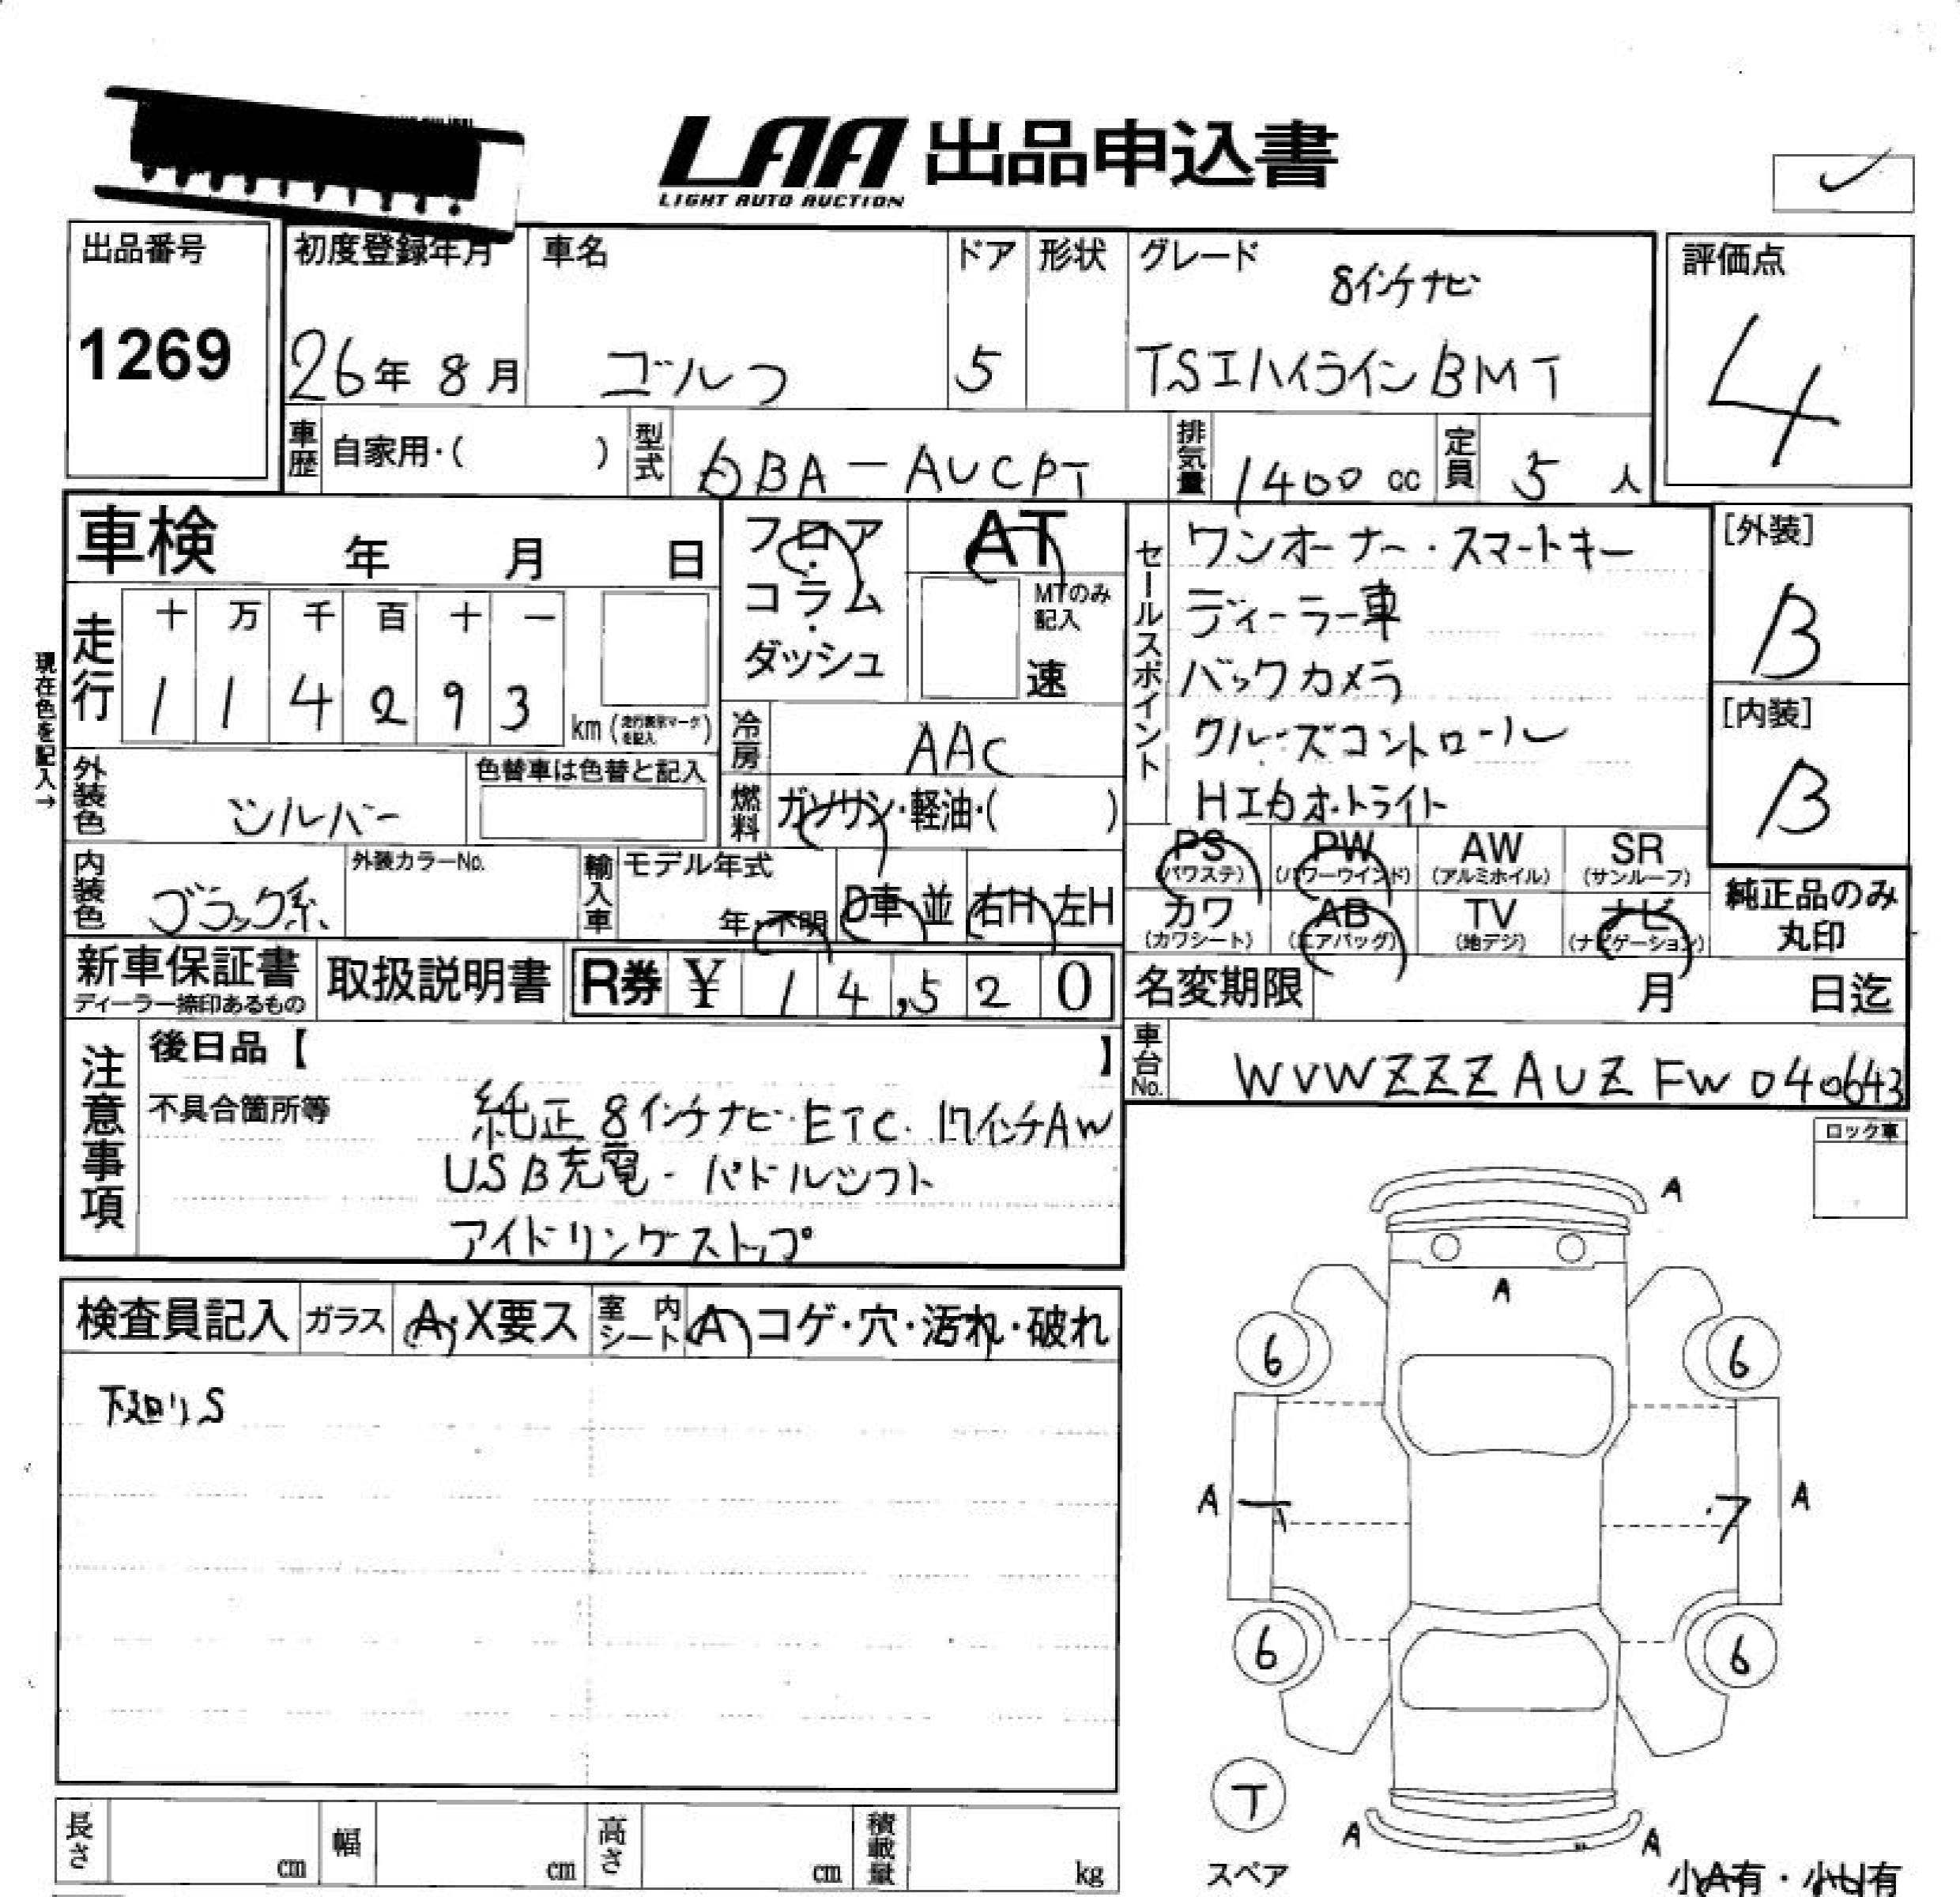 LAA 出品申込書
LIGHT AUTO AUCTION
出品番号
1269
初度登録年月
26年 8月
車名
ゴルフ
ドア
5
形状
グレード
8インチナビ
TSIハイラインBMT
評価点
4
車歴 自家用・( )
型式 DBA-AUCPT
排気量 1400 cc
定員 5 人
車検 年 月 日
フロア・コラム・ダッシュ
AT
MTのみ記入
速
セールスポイント
ワンオーナー・スマートキー
ディーラー車
バックカメラ
クルーズコントロール
HIDオートライト
[外装]
B
[内装]
B
現在色を記入→
走行
十 万 千 百 十 一
1 1 4 2 9 3
km (走行表示マークを記入)
冷房 AAC
燃料 ガソリン・軽油・( )
外装色 シルバー
色替車は色替と記入
内装色 ブラック系
外装カラーNo.
輸入車
モデル年式
年・不明
D車・並
右H・左H
PS (パワステ)
PW (パワーウインド)
AW (アルミホイル)
SR (サンルーフ)
カワ (カワシート)
AB (エアバッグ)
TV (地デジ)
ナビ (ナビゲーション)
純正品のみ
丸印
新車保証書
ディーラー捺印あるもの
取扱説明書
R券 ¥ 14,520
名変期限 月 日迄
車台No. WVWZZZAUZFW040643
注意事項
後日品【 】
不具合箇所等
純正8インチナビ・ETC・17インチAW
USB充電・パドルシフト
アイドリングストップ
ロック車
検査員記入
ガラス A・X要ス
室内シート A コゲ・穴・汚れ・破れ
下廻りS
A
A
6 6
A A
6 6
T
スペア
A A
小A有・小U有
長さ cm
幅 cm
高さ cm
積載量 kg